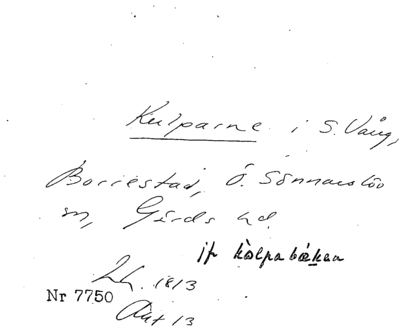 Kulparne i S. Vång,
Borrestad, Ö. Sönnarslöv
sn, Gärds hd.
jfr kolpabäken
Lh. 1813
Nr 7750
Akt 13